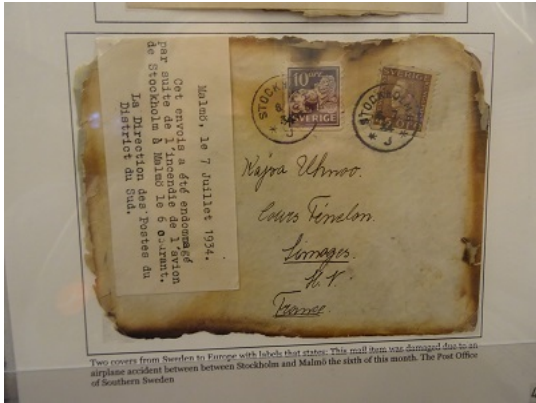 Malmö, le 7 Juillet 1934.
Cet envois a été endomagé
par suite de l'incendie de l'avion
de Stockholm à Malmö le 6 courant.
La Direction des Postes du
District du Sud.
10 ÖRE
SVERIGE
STOCKHOLM
6
34
SVERIGE
STOCKHOLM
Kajsa Uhnoo.
Cours Fénelon.
Limoges.
H.V.
France.
Two covers from Sweden to Europe with labels that states: This mail item was damaged due to an
airplane accident between between Stockholm and Malmö the sixth of this month. The Post Office
of Southern Sweden